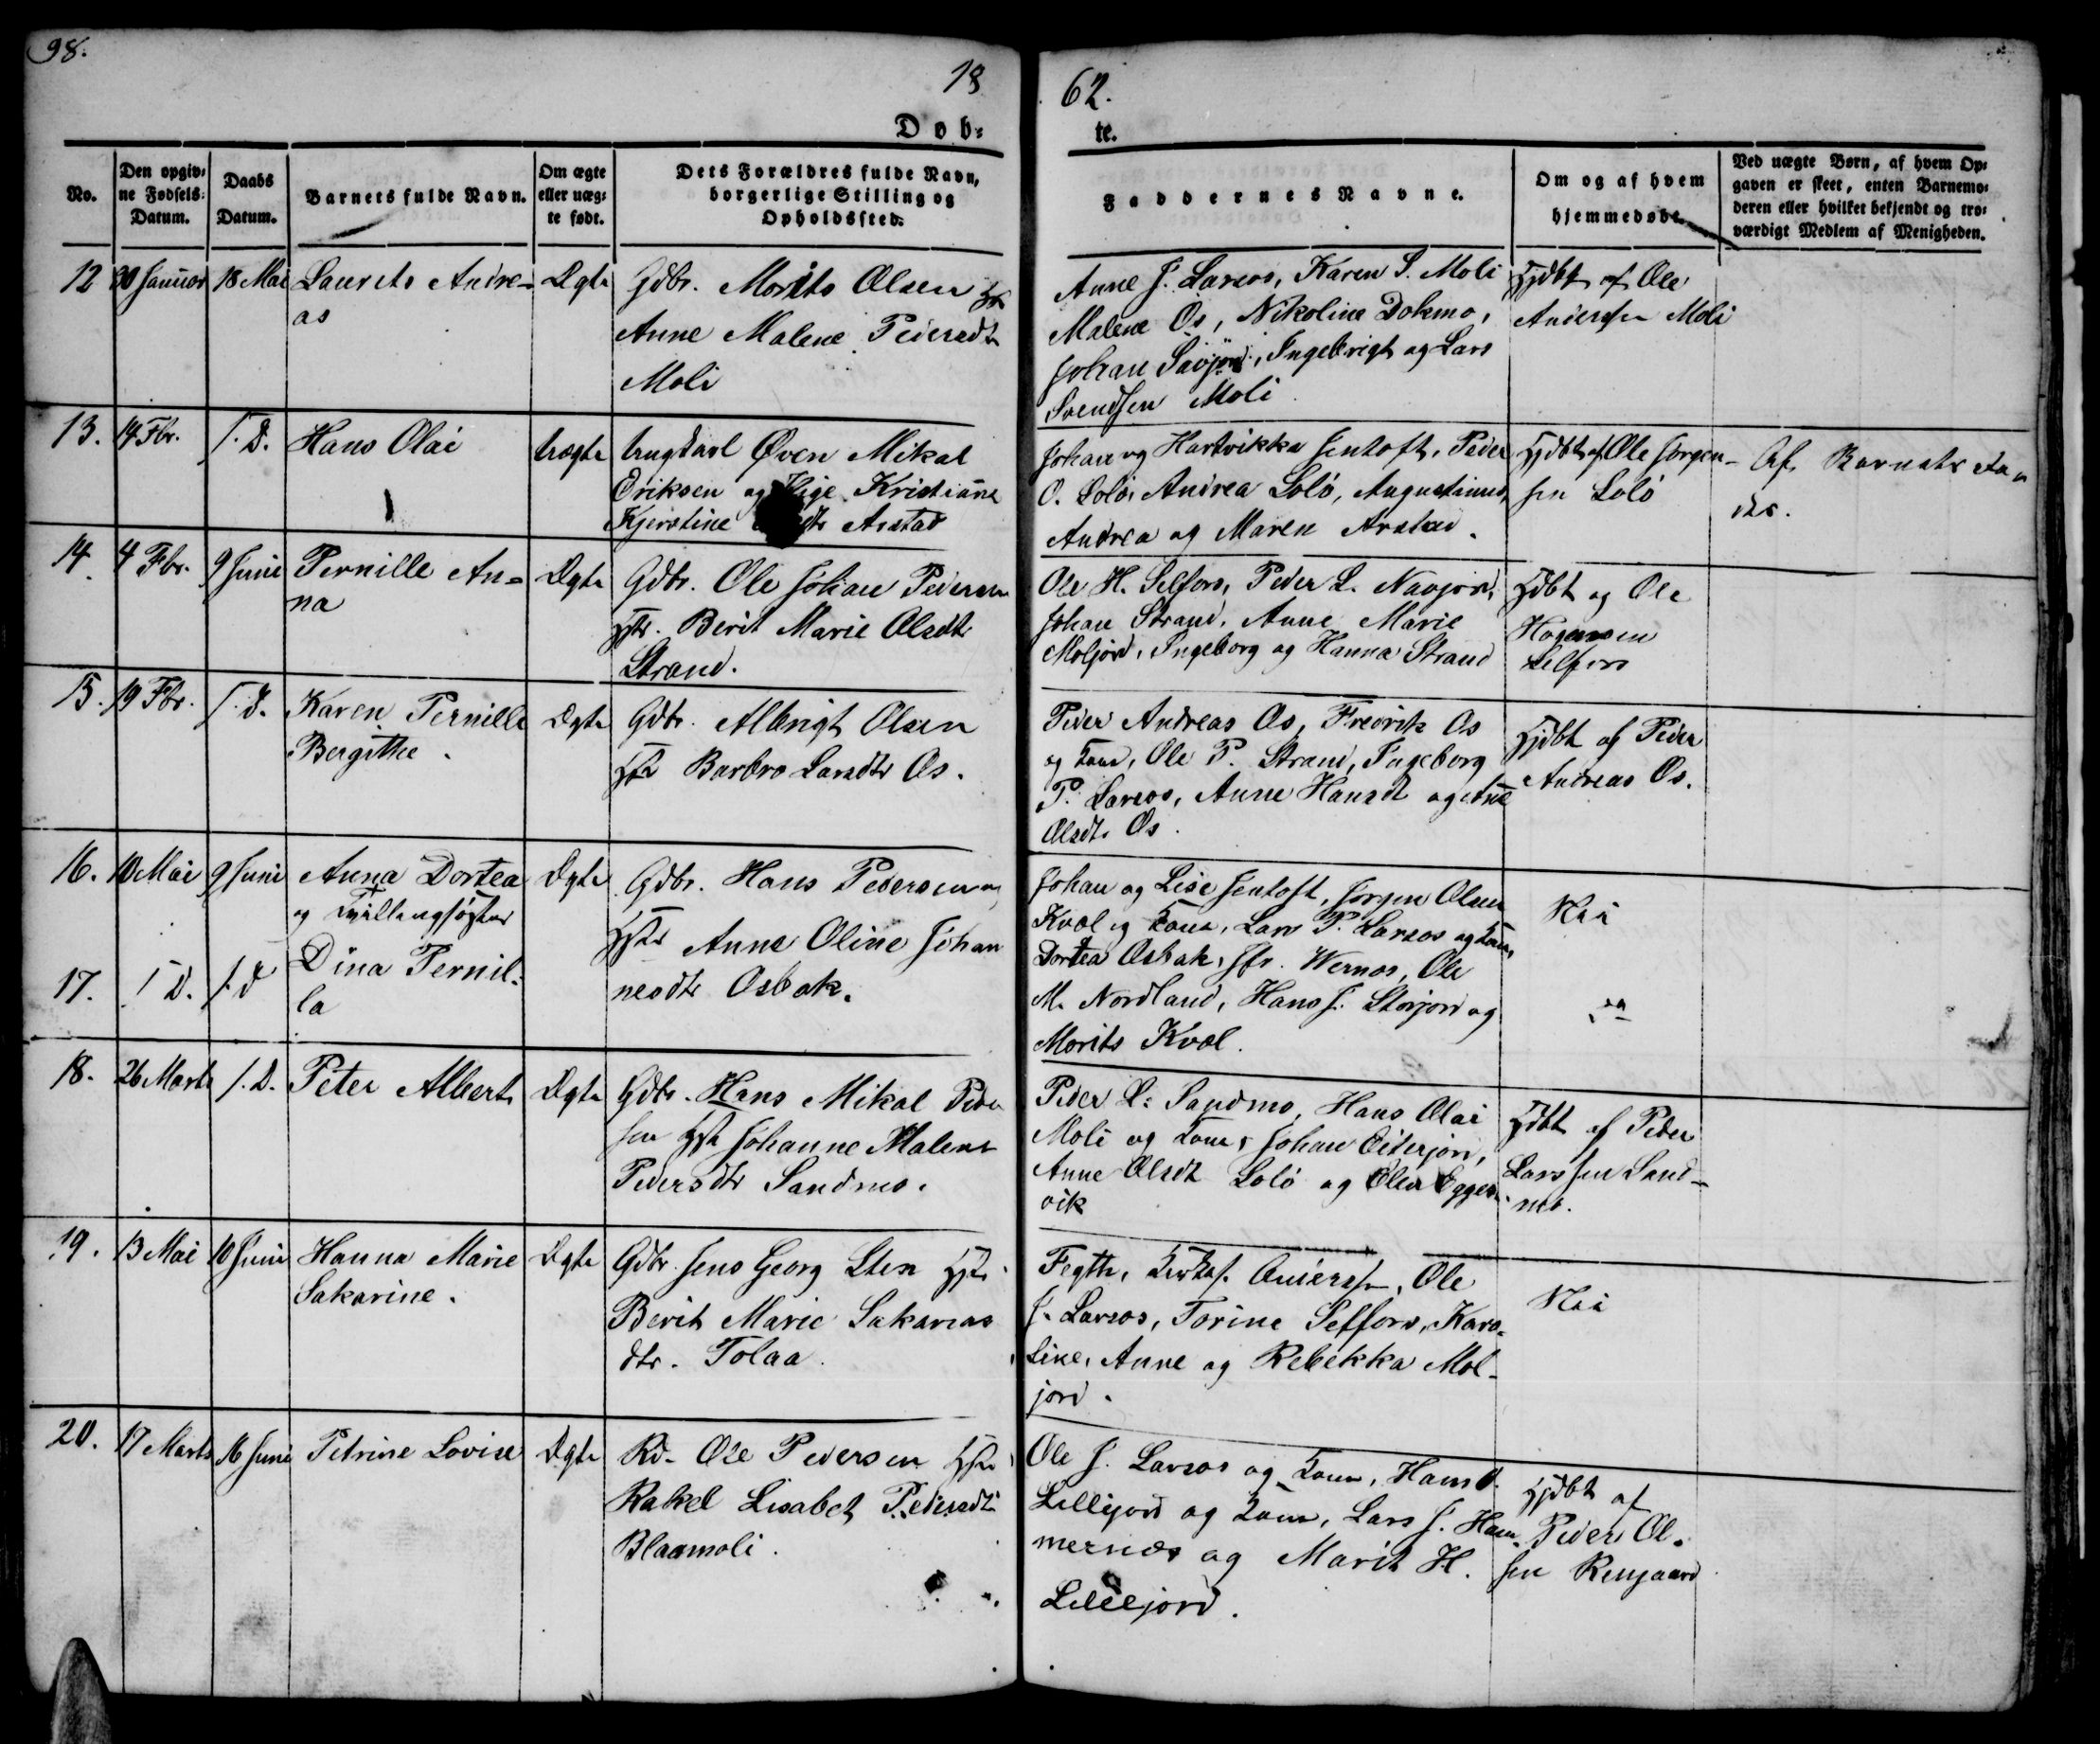 98.
18
62.
Døb-
te.
No.
Den opgiv-
ne Fødsels-
Datum.
Daabs
Datum.
Barnets fulde Navn.
Om ægte
eller uæg-
te født.
Dets Forældres fulde Navn,
borgerlige Stilling og
Opholdssted.
Faddernes Navne.
Om og af hvem
hjemmedøbt.
Ved uægte Børn, af hvem Op-
gaven er skeet, enten Barnemo-
deren eller hvilket bekjendt og tro-
værdigt Medlem af Menigheden.
12 30 Januar 18 Mai Laurits Andre-
as
Ægte
Gdbr. Morits Olsen Hst
Anne Malene Pedersdt
Moli
Anne J. Larsos, Karen S. Moli
Malene Os, Nikoline Dokmo,
Johan Saujord, Ingebrigt og Lars
Svendsen Moli
Hjdbt af Ole
Anderssen Moli
13. 14 Fbr. J. D. Hans Olai
Uægte
Ungkarl Øven Mikal
Eriksen og Pige Kristiane
Kjerstine Arstad
Johan og Hartvikka Jentoft, Peder
O. Solö, Andrea Solö, Augustinus,
Andrea og Maren Arstad.
Hjdbt af Ole Jörgen-
sen Solö
Af Barnets Fa
der.
14. 4 Fbr. 9 Juni Pernille An-
na
Ægte
Gdbr. Ole Johan Pedersen
Hstr. Berit Marie Olsdtr
Strand.
Ole H. Selfors, Peder L. Navjord,
Johan Strand, Anne Marie
Moljord, Ingeborg og Hanna Strand
Hjdbt og Ole
Hagensen
Selfors
15. 19 Fbr. J. D. Karen Pernille
Bergithe.
Ægte
Gdbr. Albrigt Olsen
Hst Barbro Larsdtr Os.
Peder Andreas Os, Fredrik Os
og Kone, Ole P. Strand, Ingeborg
P. Larsos, Anne Hansdt og Ane
Olsdtr Os.
Hjdbt af Peder
Andreas Os.
16. 10 Mai 9 Juni Anna Dortea
og Tvillingsöster
Ægte
Gdbr. Hans Pedersen og
Hstr Anne Oline Johan
nesdtr Osbak.
17. J D. J. D Dina Pernil-
la
Johan og Lise Jentoft, Jörgen Olsen
Kvæl og Kone, Lars P. Larsos og Kone,
Dortea Osbak, Jfr. Wernos, Ole
M. Nordland, Hans J. Storjord og
Morits Kvæl.
Nei
18. 26 Marts J. D. Peter Albert
Ægte
Gdbr. Hans Mikal Peder
sen Hst Johanne Malene
Pedersdtr Sandmo.
Peder L. Sandmo, Hans Olai
Moli og Kone, Johan Eiterjord,
Anne Olsdt Solö og Oles Egges-
vik
Hjdbt af Peder
Larssen Sand-
mo.
19. 13 Mai 10 Juni Hanna Marie
Sakarine.
Ægte
Gdbr. Jens Georg Sten Hstr
Berit Marie Sakarias
dtr. Tolaa.
Fegth, Anderssen, Ole
J. Larsos, Torine Selfors, Karo-
line, Anne og Rebekka Mol-
jord.
Nei
20. 17 Marts 16 Juni Petrine Lovise
Ægte
Rd. Ole Pedersen Hstr
Rakel Lisabet Pedersdt
Blaamoli.
Ole J. Larsos og Kone, Hans O.
Lillejord og Kone, Lars J. Ham-
mernæs og Marit H.
Lillejord.
Hjdbt af
Peder Ol-
sen Rengaard